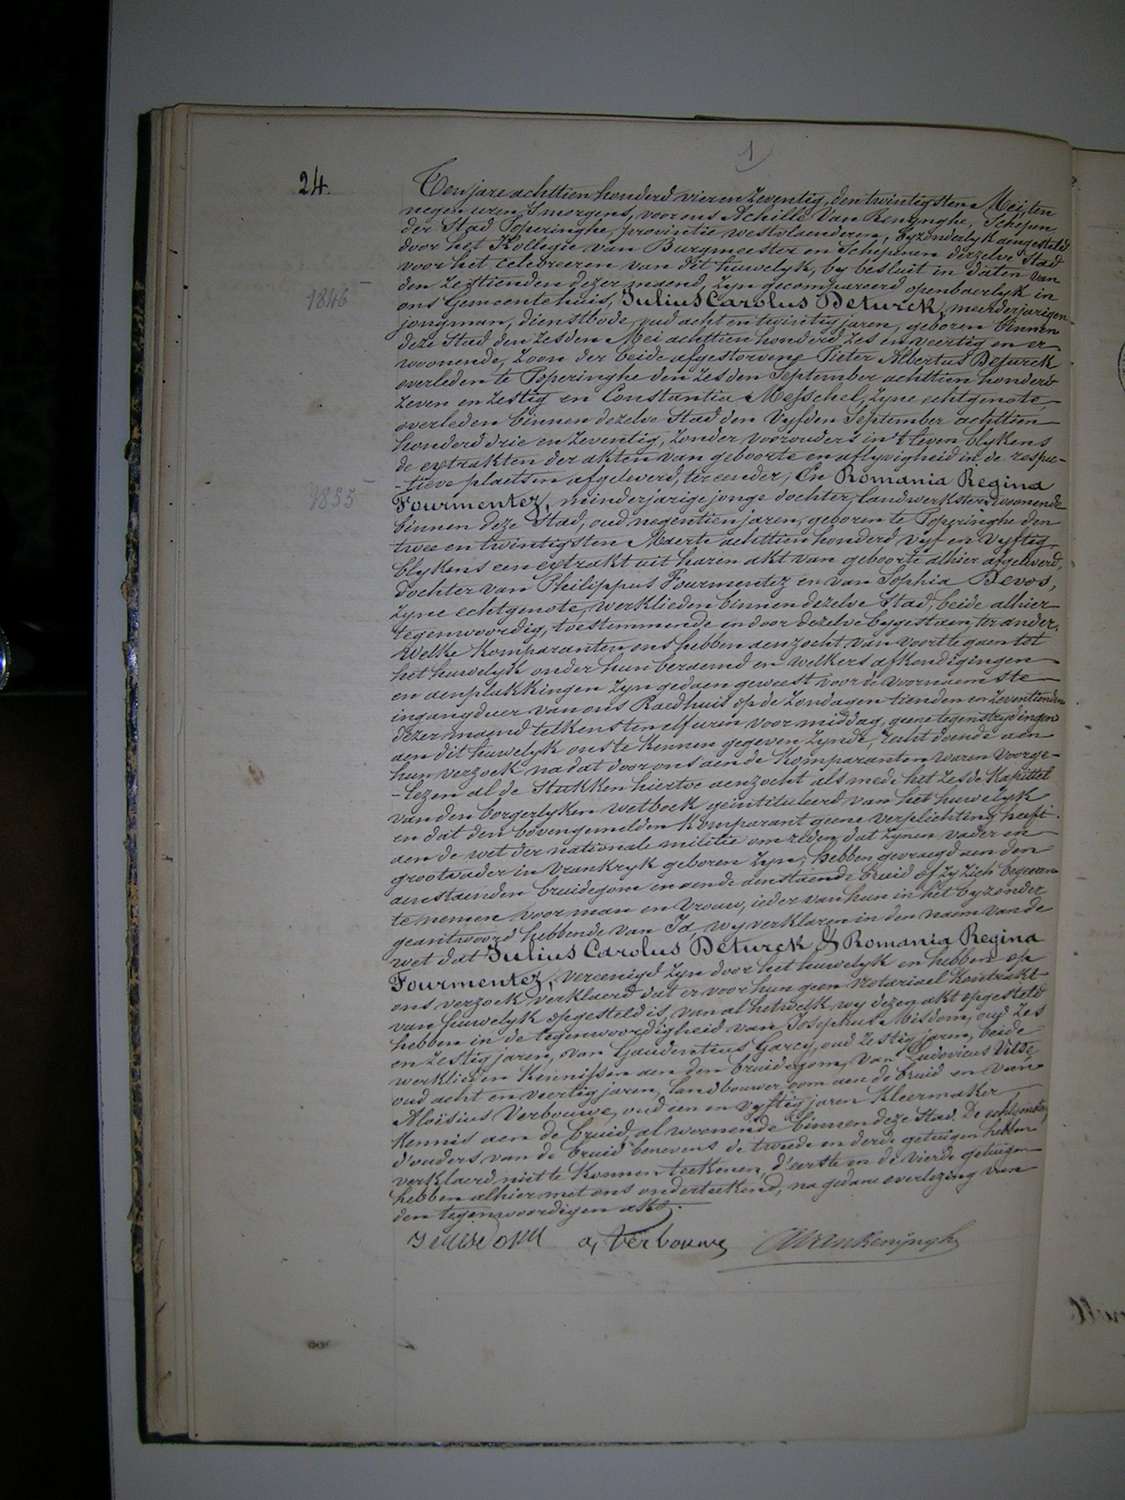 1
24.
Ten jare achttien honderd vier en Zeventig, den twintigsten Mei, ten
negen uren 's morgens, voor ons Achille Van Renynghe, Schepen
der Stad Poperinghe, provintie westvlaenderen, byzonderlyk aengesteld
door het Kollegie van Burgmeester en Schepenen derzelve Stad
voor het celebreeren van dit huwelyk, by besluit in daten van
den zestienden dezer maend, zyn gecompareerd openbaerlyk in
1846
ons Gemeentehuis, Julius Carolus Deturck, meerderjarigen
jongman, dienstbode, oud acht en twintig jaren, geboren binnen
deze Stad den zesden Mei achttien honderd zes en veertig en er
woonende, zoon der beide afgestorvene Pieter Albertus Deturck
overleden te Poperinghe den zesden September achttien honderd
zeven en zestig en Constantia Messchel, zyne echtgenote,
overleden binnen dezelve Stad den vyfden September achttien
honderd drie en zeventig, zonder voorouders in 't leven blykens
de extrakten der akten van geboorte en aflyvigheid in de respec-
-tieve plaetsen afgeleverd, ter eender; En Romania Regina
1855
Fourmentez, minderjarige jonge dochter, landwerkster, woonende
binnen deze Stad, oud negentien jaren, geboren te Poperinghe den
twee en twintigsten Maerte achttien honderd vyf en vyftig
blykens een extrakt uit haren akt van geboorte alhier afgeleverd,
dochter van Philippus Fourmentez en van Sophia Devos,
zyne echtgenote, werklieden binnen dezelve Stad, beide alhier
tegenwoordig, toestemmende en door dezelve bygestaen, ter ander.
Welke Komparanten ons hebben aenzocht van voort te gaen tot
het huwelyk onder hun beraemd en welkers afkondigingen
en aenplakkingen zyn gedaen geweest voor de voornaemste
ingangdeur van ons Raedhuis op de Zondagen tienden en zeventienden
dezer maend telkens ten elf uren voor middag, geene tegenstrydingen
aen dit huwelyk ons te kennen gegeven zynde, recht doende aen
hun verzoek nadat door ons aen de Komparanten waren voorge-
-lezen al de Stukken hiertoe aenzocht alsmede het zesde Kapittel
van den borgerlyken wetboek geïntituleerd, van het huwelyk
en dat den bovengemelden Komparant geene verplichting heeft
aen de wet der nationale militie om reden dat zynen vader en
grootvader in Vrankryk geboren zyn; hebben gevraegd aen den
aenstaenden bruidegom en aen de aenstaende bruid of zy zich begeeren
te nemen voor man en vrouw, ieder van hun in het byzonder
geantwoord hebbende van Ja, wy verklaren in den naem van de
wet dat Julius Carolus Deturck & Romania Regina
Fourmentez, vereenigd zyn door het huwelyk en hebben op
ons verzoek verklaerd dat er voor hun geen notariael Kontrakt
van huwelyk opgesteld is, van al hetwelk wy dezen akt opgesteld
hebben in de tegenwoordigheid van Josephus Misdom, oud zes
en zestig jaren, van Gaudentius Garcy, oud zestig jaren, beide
werklieden Kennissen aen den bruidegom, van Ludovicus
oud acht en veertig jaren, landbouwer oom aen de bruid en van
Aloïsius Verbouwe, oud een en vyftig jaren Kleermaker
Kennis aen de bruid, al woonende binnen deze Stad. De echtgenoten,
d'ouders van de bruid benevens de tweede en derde getuigen hebben
verklaerd niet te konnen teekenen, d'eerste en de vierde getuigen
hebben alhier met ons onderteekend, na gedane overlezing van
den tegenwoordigen akt.
a, Verbouwe AVanRenynghe